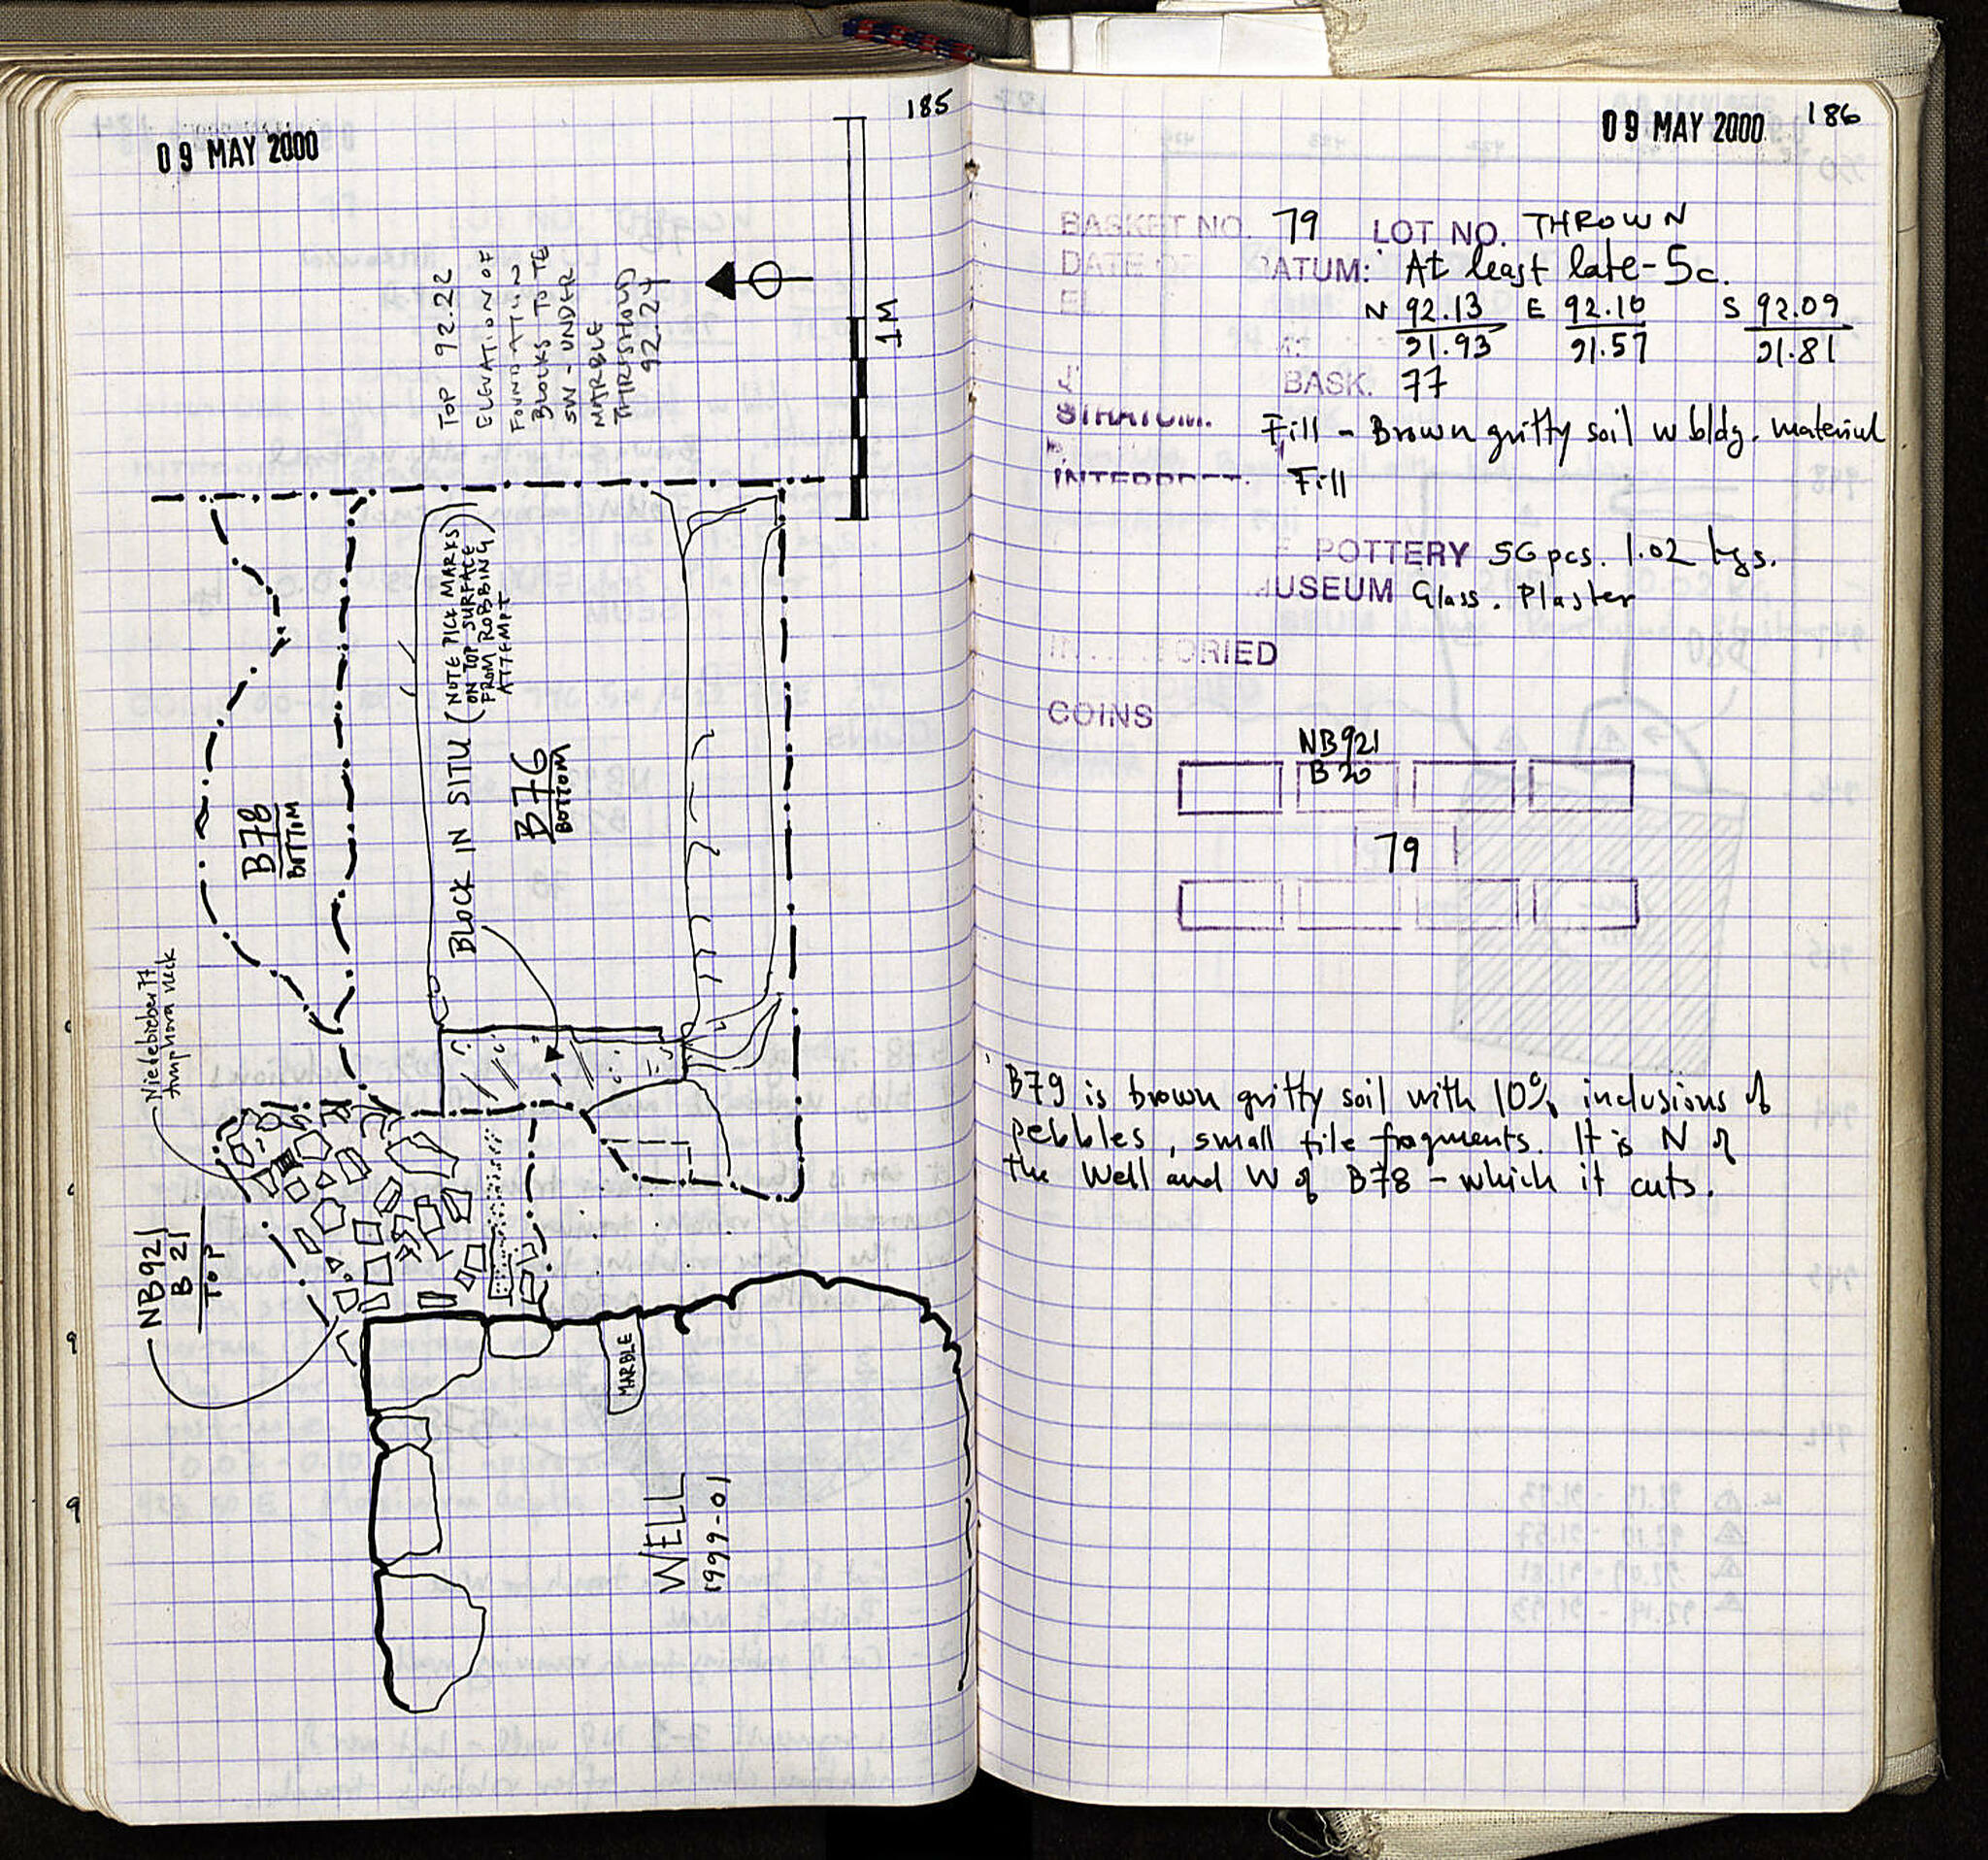 185
09 MAY 2000
1M
TOP 92.22
ELEVATION OF
FOUNDATION
BLOCKS TO TE
SW - UNDER
MARBLE
THRESHOLD
92.24
B78
BOTTOM
BLOCK IN SITU (NOTE PICK MARKS
ON TOP SURFACE
FROM ROBBING
ATTEMPT)
B76
BOTTOM
Amphora neck
NB921
B 21
TOP
MARBLE
WELL
1999-01
186
09 MAY 2000
BASKET NO. 79 LOT NO. THROWN
DATE OF ATUM: At least late-5c.
EL. N 92.13 E 92.10 S 92.09
91.93 91.57 91.81
BASK. 77
STRATUM. Fill - Brown gritty soil w bldg. material
INTERPRET. Fill
POTTERY 56 pcs. 1.02 kgs.
USEUM Glass. Plaster
ORIED
COINS
NB921
B20
79
B79 is brown gritty soil with 10% inclusions of
pebbles, small tile fragments. It is N of
the Well and W of B78 - which it cuts.